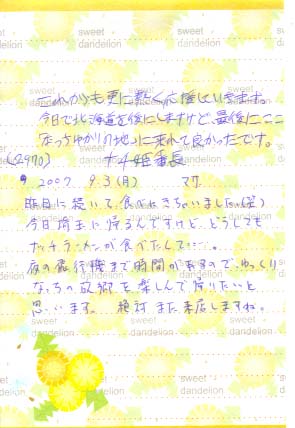 これからも更に熱く応援していきます。
今日で北海道を後にしますけど、最後にここ
なっちゆかりの地に来れて良かったです。
(2970)
2007 9.3(月) マサ
昨日に続いて、食べにきちゃいました(笑)
今日埼玉に帰るんですけど、どうしても
ナッチラーメンが食べたくて…。
夜の最終機まで時間があるので、ゆっくり
なっちの故郷を楽しんで帰りたいと
思います。 絶対また来店しますね。
sweet
dandelion